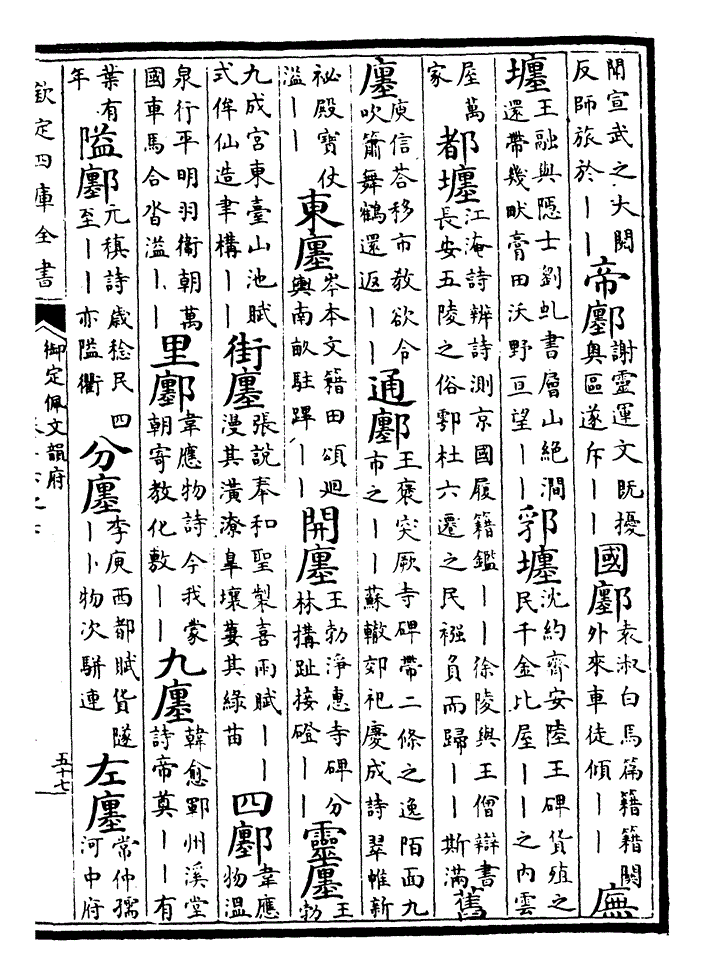 閒宣武之大閱反師旅於——帝鄽謝靈運文既擾奥區遂斥——國鄽袁淑白馬篇籍籍關外來車徒傾——廡
壥王融與隱士劉虬書層山絕澗還帶幾畎膏田沃野亘望——郛壥沈約齊安陸王碑貨殖之民千金比屋——之内雲
屋萬家都壥江淹詩辨詩測京國履籍鑑——徐陵與王僧辯書長安五陵之俗鄠杜六遷之民襁負而歸——斯滿舊
廛庾信荅移市教欲令吹簫舞鶴還返——通鄽王褒突厥寺碑帶二條之逸陌面九市之——蘇轍郊祀慶成詩翠帷新
祕殿寶仗溢——東廛岑本文籍田頌迴輿南畝駐蹕——開廛王勃淨惠寺碑分林搆趾接磴——靈廛王勃
九成宮東臺山池賦式侔仙造聿構——街廛張說奉和聖製喜雨賦——漫其潢潦臯壤萋其綠苗四鄽韋應物温
泉行平明羽衞朝萬國車馬合沓溢——里鄽韋應物詩今我蒙朝寄教化敷——九廛韓愈鄆州溪堂詩帝奠——有
葉有年隘鄽元稹詩歲稔民四至——亦隘衢分廛李庾西都賦貨隧——卜物次駢連左廛常仲孺河中府
欽定四庫全書
御定佩文韻府
五十七